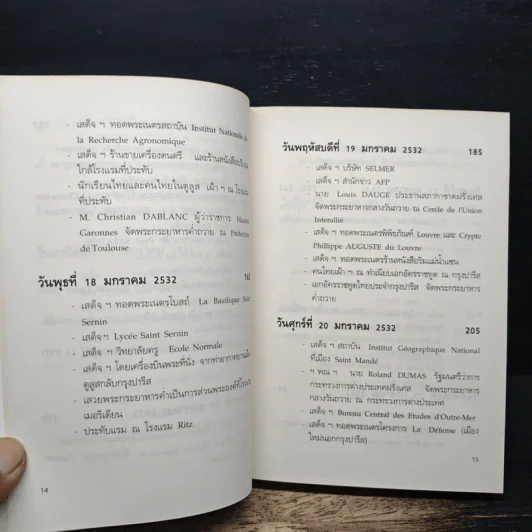 - เสด็จ ฯ ทอดพระเนตรสถาบัน Institut Nationale de
la Recherche Agronomique
- เสด็จ ฯ ร้านขายเครื่องดนตรี และร้านหนังสือบริเวณ
ใกล้โรงแรมที่ประทับ
- นักเรียนไทยและคนไทยในตูลูส เฝ้า ฯ ณ โรงแรม
ที่ประทับ
- M. Christian DABLANC ผู้ว่าราชการ Haute
Garonnes จัดพระกระยาหารค่ำถวาย ณ Préfecture
de Toulouse
วันพุธที่ 18 มกราคม 2532
- เสด็จ ฯ ทอดพระเนตรโบสถ์ La Basilique Saint
Sernin
- เสด็จ ฯ Lycée Saint Sernin
- เสด็จ ฯ วิทยาลัยครู Ecole Normale
- เสด็จ ฯ โดยเครื่องบินพระที่นั่ง จากท่าอากาศยานเมือง
ตูลูสกลับกรุงปารีส
- เสวยพระกระยาหารค่ำเป็นการส่วนพระองค์ที่โรงแรม
เมอริเดียน
- ประทับแรม ณ โรงแรม Ritz
14
วันพฤหัสบดีที่ 19 มกราคม 2532 185
- เสด็จ ฯ บริษัท SELMER
- เสด็จ ฯ สำนักข่าว AFP
- นาย Louis DAUGE ประธานสภากาชาดฝรั่งเศส
จัดพระกระยาหารกลางวันถวาย ณ Cercle de l'Union
Interallié
- เสด็จ ฯ ทอดพระเนตรพิพิธภัณฑ์ Louvre และ Crypte
Phillippe AUGUSTE du Louvre
- เสด็จ ฯ ทอดพระเนตรร้านหนังสือริมแม่น้ำแซน
- คนไทยเฝ้า ฯ ณ ทำเนียบเอกอัครราชทูต ณ กรุงปารีส
- เอกอัครราชทูตไทยประจำกรุงปารีส จัดพระกระยาหาร
ค่ำถวาย
วันศุกร์ที่ 20 มกราคม 2532 205
- เสด็จ ฯ สถาบัน Institut Géographique National
ที่เมือง Saint Mandé
- ฯ พณฯ นาย Roland DUMAS รัฐมนตรีว่าการ
กระทรวงการต่างประเทศฝรั่งเศส จัดพระกระยาหาร
กลางวันถวาย ณ กระทรวงการต่างประเทศ
- เสด็จ ฯ Bureau Central des Etudes d'Outre-Mer
- เสด็จ ฯ ทอดพระเนตรโครงการ La Défense (เมือง
ใหม่นอกกรุงปารีส)
15